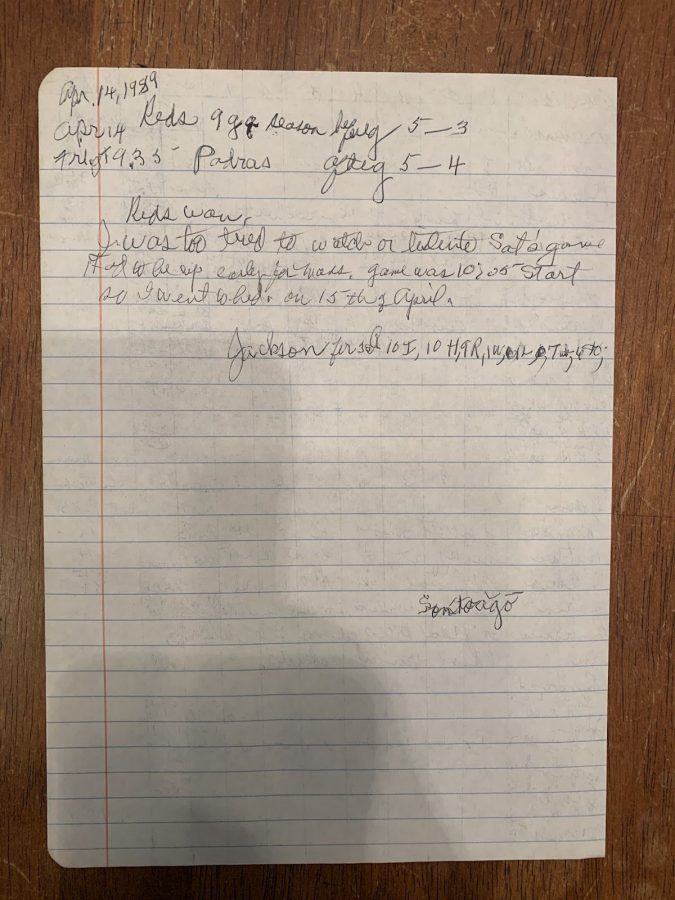 Apr. 14, 1989
Apr 14 Reds 9 g season 5-3
9.35 Padras 5-4
Reds won,
I was too tried to watch or Sat's game
Had to be up early for mass. game was 10:05 Start
so I went to bed. on 15th of April.
Jackson 10 I, 10 H, 9 R,
Sontoago